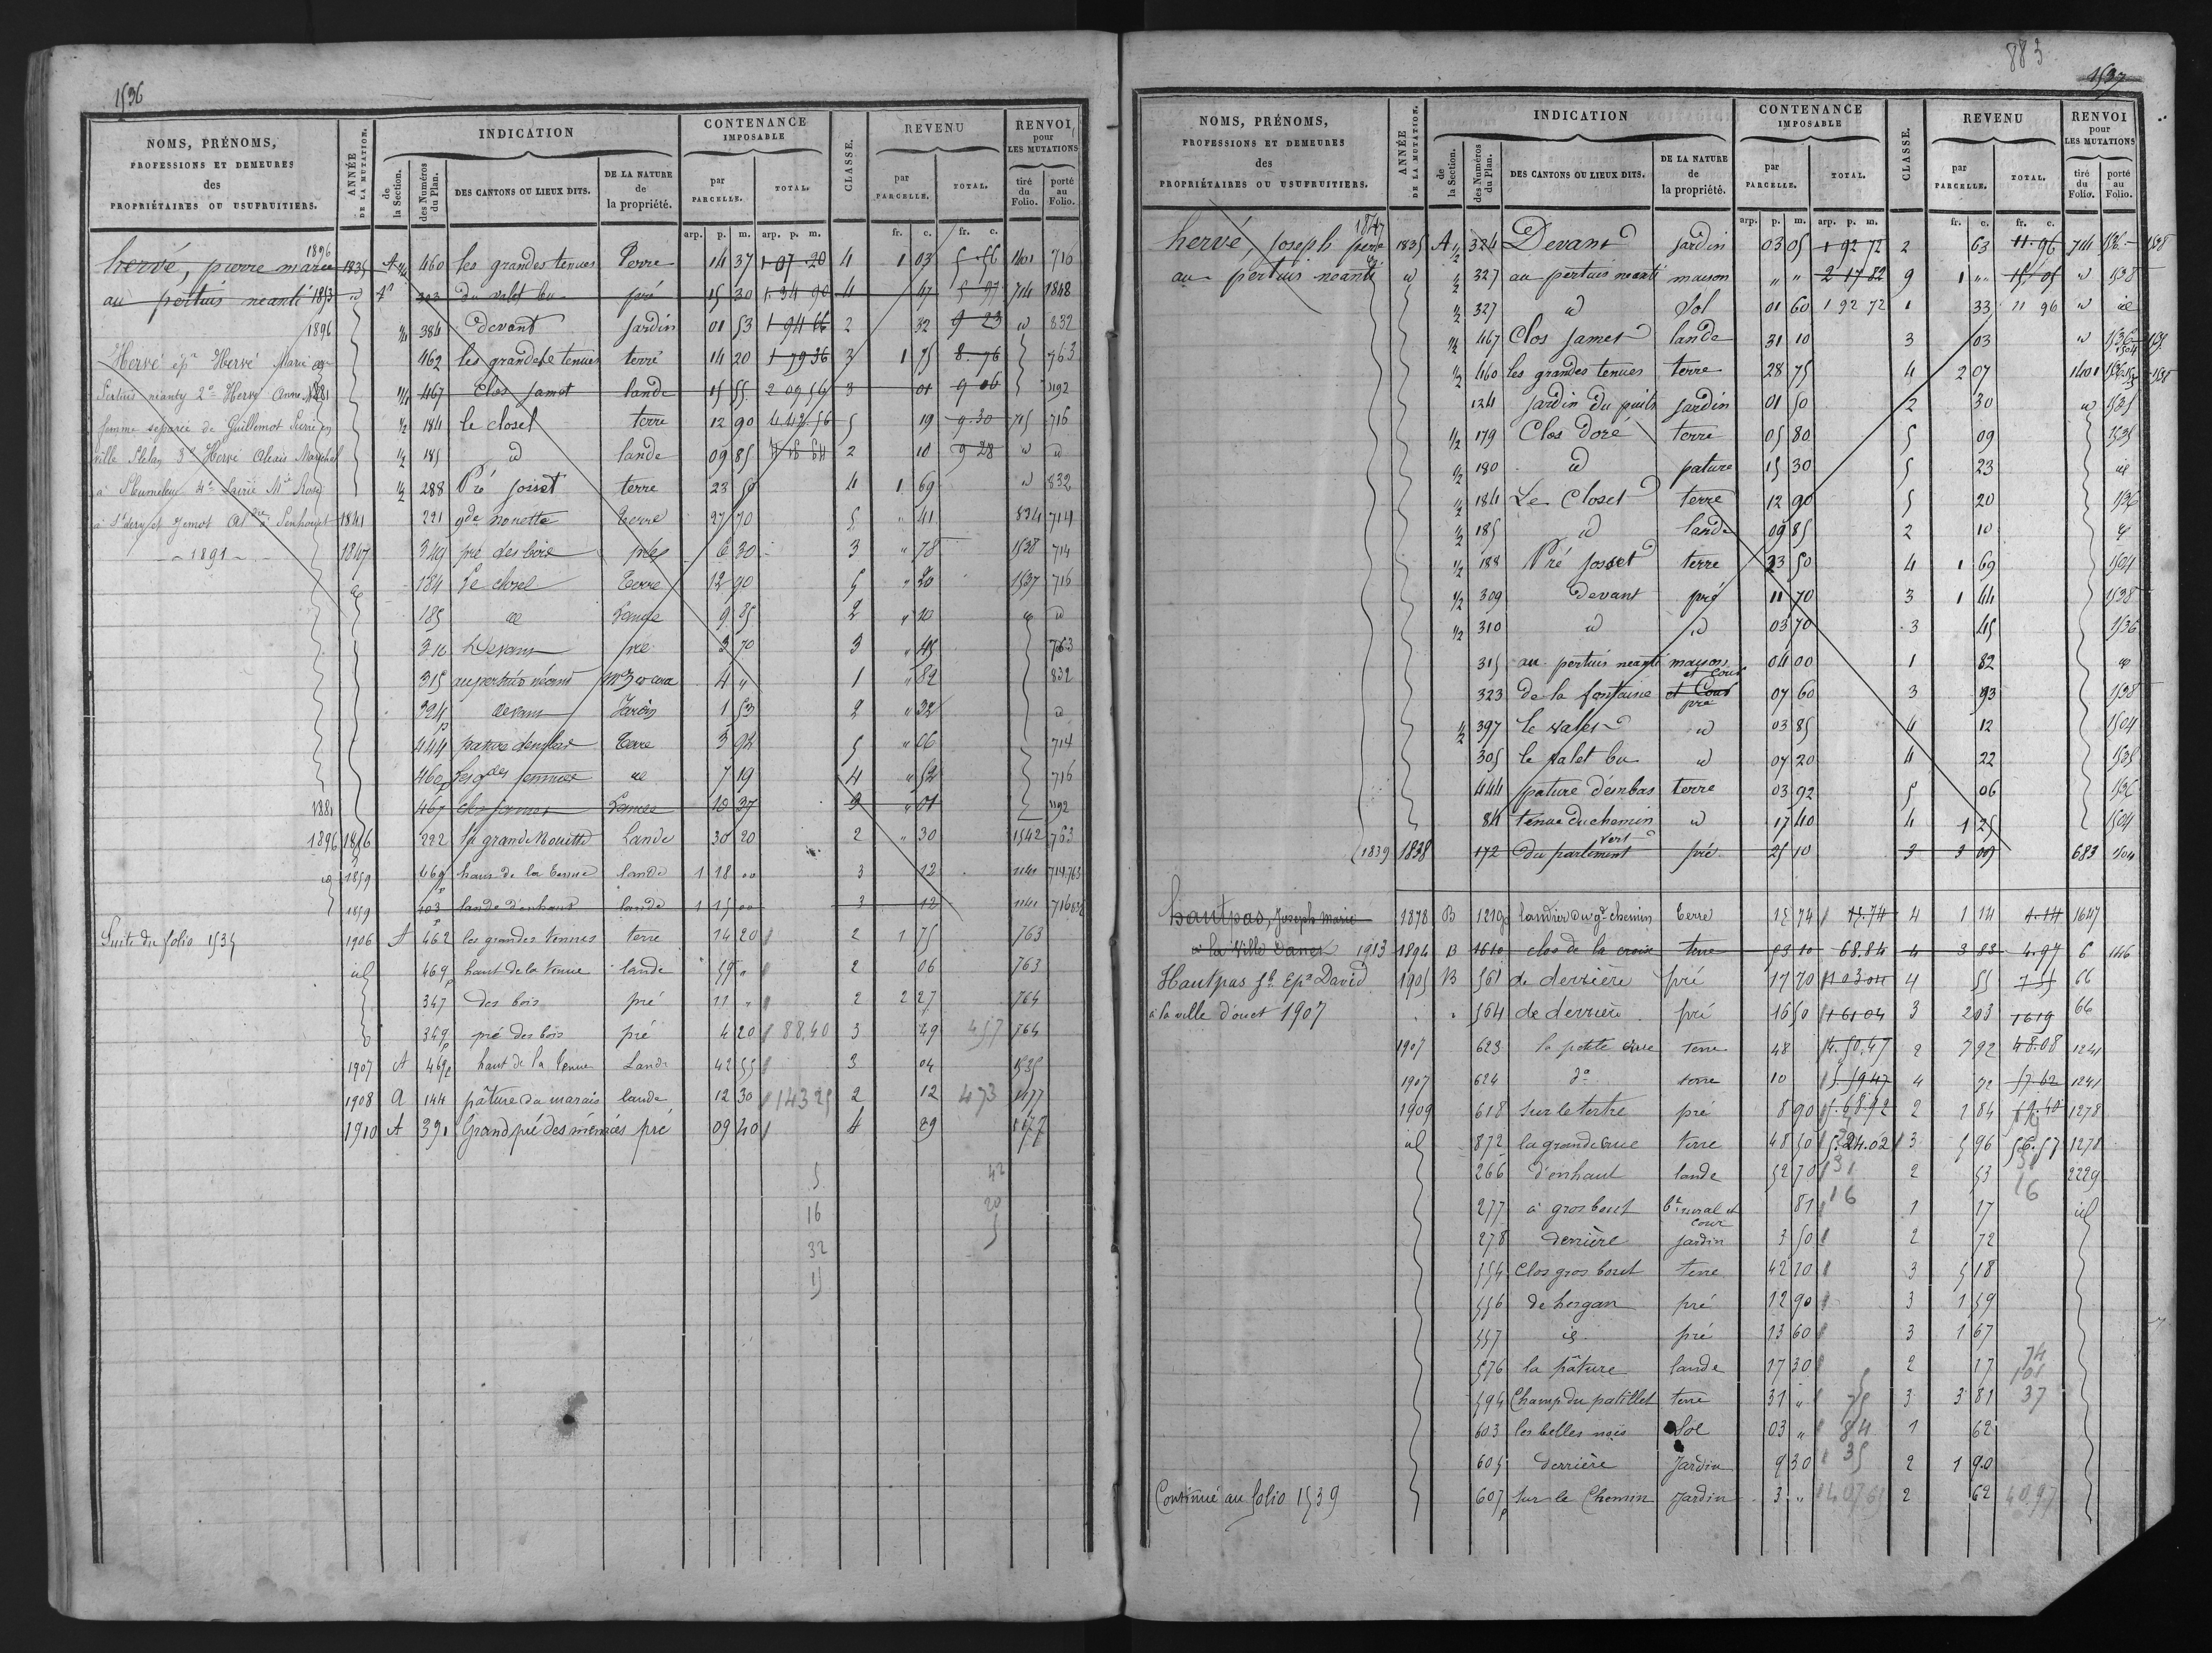 1536
NOMS, PRÉNOMS,
PROFESSIONS ET DEMEURES
des
PROPRIÉTAIRES OU USUFRUITIERS.
ANNÉE DE LA MUTATION.
INDICATION
de la Section.
des Numéros du Plan.
DES CANTONS OU LIEUX DITS.
DE LA NATURE de la propriété.
CONTENANCE IMPOSABLE
par PARCELLE.
TOTAL.
CLASSE.
REVENU
par PARCELLE.
TOTAL.
RENVOI pour LES MUTATIONS
tiré du Folio.
porté au Folio.
arp. p. m. arp. p. m. fr. c. fr. c.
1896
hervé, pierre marie 1835 A 460 les grandes tenues Terre 14 37 1 07 20 4 1 03 5 56 1401 716
au pertuis neanti 1853 id 303 du valet bu pré 15 30 1 34 90 4 47 5 97 714 1848
1896 384 devant Jardin 01 53 1 94 66 2 32 9 23 id 832
Hervé épx Hervé Marie 462 les grandes tenues terre 14 20 1 79 36 3 1 75 8 76 763
Pertuis néanty 2° Hervé Anne 1881 1/4 467 Clos Jamet lande 15 55 2 09 56 3 01 9 06 1192
femme séparée de Guillemot 1/2 184 le closet terre 12 90 5 19 9 30 715 716
3° Hervé 1/2 185 id lande 09 85 2 10 9 28 id id
1/2 288 Pré Josset terre 23 50 4 1 69 id 832
1841 221 gde nouette terre 27 70 5 " 41 834 714
1891 1847 349 pré des bois pré 6 30 3 " 78 1538 714
184 Le closel Terre 12 90 5 " 20 1537 716
185 id Lande 9 85 2 " 10 id
310 Devant pré 3 70 3 " 45 763
315 au pertuis néant 4 " 1 " 82 832
324 devant Jardin 1 53 2 " 32 id
444 pature d'embas Terre 3 92 5 " 06 714
460 Les gdes tennues id 7 19 4 " 52 716
1881 467 clos jamet Landes 10 37 3 " 01 1192
1896 1856 222 la grande Nouette Lande 30 20 2 " 30 1542 763
id 1859 469 haut de la tenue lande 1 18 00 3 12 1141 714.763
1859 403 lande d'enhaut lande 1 15 00 3 12 1141 716
Suite du folio 1535 1906 A 462 les grandes tenues terre 14 20 2 1 75 763
id 469 haut de la tenue lande 59 " 2 06 763
347 des bois pré 11 " 2 2 27 764
349 pré des bois pré 4 20 88,40 3 49 457 764
1907 A 469 haut de la tenue Lande 42 55 3 04 1535
1908 A 144 pâture du marais lande 12 30 143 25 2 12 473 1177
1910 A 391 Grand pré des pré 09 40 4 29 1177
5 42
16 20
32 5
15
883
1537
NOMS, PRÉNOMS,
PROFESSIONS ET DEMEURES
des
PROPRIÉTAIRES OU USUFRUITIERS.
ANNÉE DE LA MUTATION.
INDICATION
de la Section.
des Numéros du Plan.
DES CANTONS OU LIEUX DITS.
DE LA NATURE de la propriété.
CONTENANCE IMPOSABLE
par PARCELLE.
TOTAL.
CLASSE.
REVENU
par PARCELLE.
TOTAL.
RENVOI pour LES MUTATIONS
tiré du Folio.
porté au Folio.
arp. p. m. arp. p. m. fr. c. fr. c.
1847
hervé, Joseph père 1835 A 1/2 324 Devant Jardin 03 05 1 92 72 2 63 11.96 714 1536 1538
au pertuis neanti id 1/2 327 au pertuis neanti maison " " 2 17 82 9 1 " 15 05 id 1538
1/2 327 id Sol 01 60 1 92 72 1 33 11 96 id id
1/2 467 Clos Jamet lande 31 10 3 03 id 1536
1/2 460 les grandes tenues terre 28 75 4 2 07 1401 1538
124 Jardin du puits Jardin 01 50 2 30 id 1535
1/2 179 Clos Doré terre 05 80 5 09 1535
1/2 180 id pature 15 30 5 23 id
1/2 184 Le Closet terre 12 90 5 20 1536
1/2 185 id lande 09 85 2 10
1/2 188 Pré Josset terre 23 50 4 1 69 1504
1/2 309 devant pré 11 70 3 1 44 1538
1/2 310 id id 03 70 3 45 1536
315 au pertuis neanti maison et cour 04 00 1 82
323 de la fontaine et Cour pré 07 60 3 93 1538
1/2 397 le valet id 03 85 4 12 1504
305 le valet bu id 07 20 4 22 1535
444 pature d'embas terre 03 92 5 06 1536
84 tenue du chemin vert id 17 40 4 1 25 1504
1839 1838 172 du parlement pré 25 10 3 3 09 683 1504
hautpas, Joseph Marie 1878 B 1219 landier du gd chemin terre 15 74 15.74 4 1 14 1.14 1647
à la Ville Danet 1913 1894 B 1610 clos de la croix terre 53 10 68.84 4 3 83 4.97 6 146
Hautpas Jh Epx David 1905 B 561 de derrière pré 17 70 4 55 66
à la ville d'ouet 1907 564 de derrière pré 16 50 1 61 04 3 203 1619 66
1907 623 la petite terre 48 4.50.47 2 7 92 48.08 1241
1907 624 d° terre 10 4 1241
1909 618 sur le tertre pré 8 90 2 1 84 1278
id 872 la grande rue terre 48 50 5.24.02 3 5 96 56.57 1278
266 d'enhaut lande 52 70 31 2 53 31 2229
277 à gros bout bt rural et cour 81 16 1 17 16 id
278 derrière Jardin 3 50 2 72
554 Clos gros bout terre 42 20 3 5 18
556 de hergan pré 12 90 3 1 59
557 id pré 13 60 3 1 67
576 la pâture lande 17 30 2 17 74
594 Champ du patillet terre 31 " 75 3 3 81 37
603 les belles Sol 03 " 84 1 62
605 derrière Jardin 9 30 35 2 1 90
Continué au folio 1539 607 Sur le Chemin Jardin 3 " 2 62 40,97